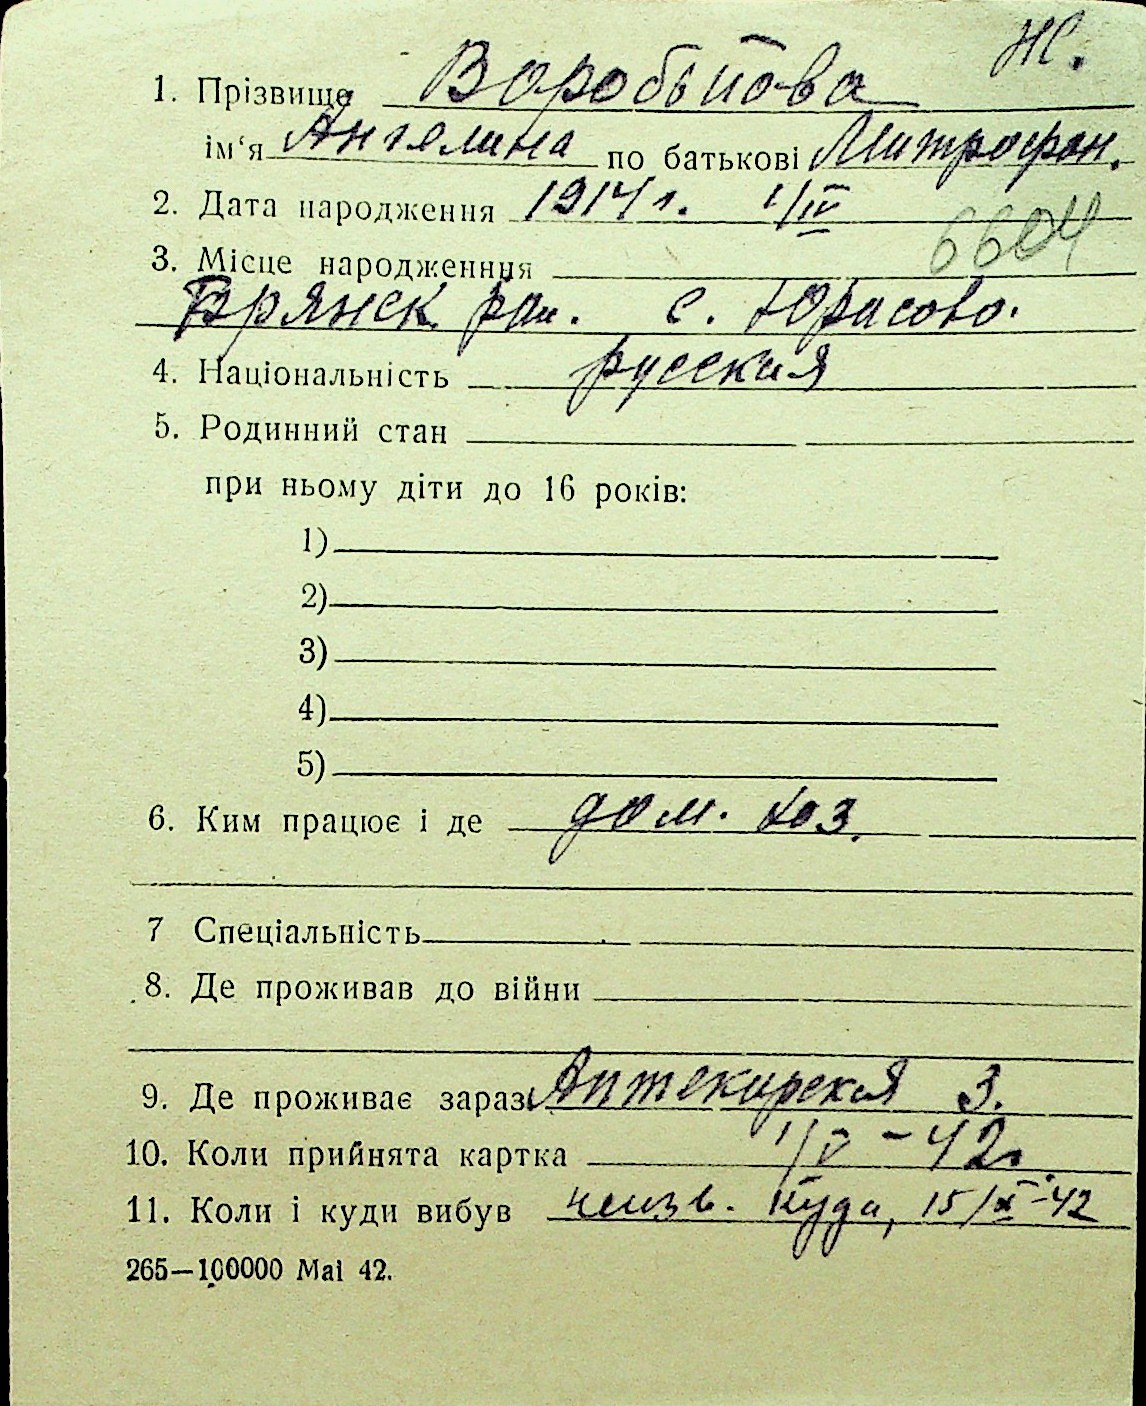 Ж.
1. Прізвище Воробьйова
ім‘я Ангелина по батькові Митрофан.
2. Дата народження 1914 г. 1/IV
6604
3. Місце народженння
Брянск рай. с. Юрасово.
4. Національність русская
5. Родинний стан
при ньому діти до 16 років:
1)
2)
3)
4)
5)
6. Ким працює і де дом. хоз.
7 Спеціальність
8. Де проживав до війни
9. Де проживає зараз Аптекарская 3.
10. Коли прийнята картка 1/V -42г.
11. Коли і куди вибув неизв. куда, 15/IX-42
265—100000 Mai 42.